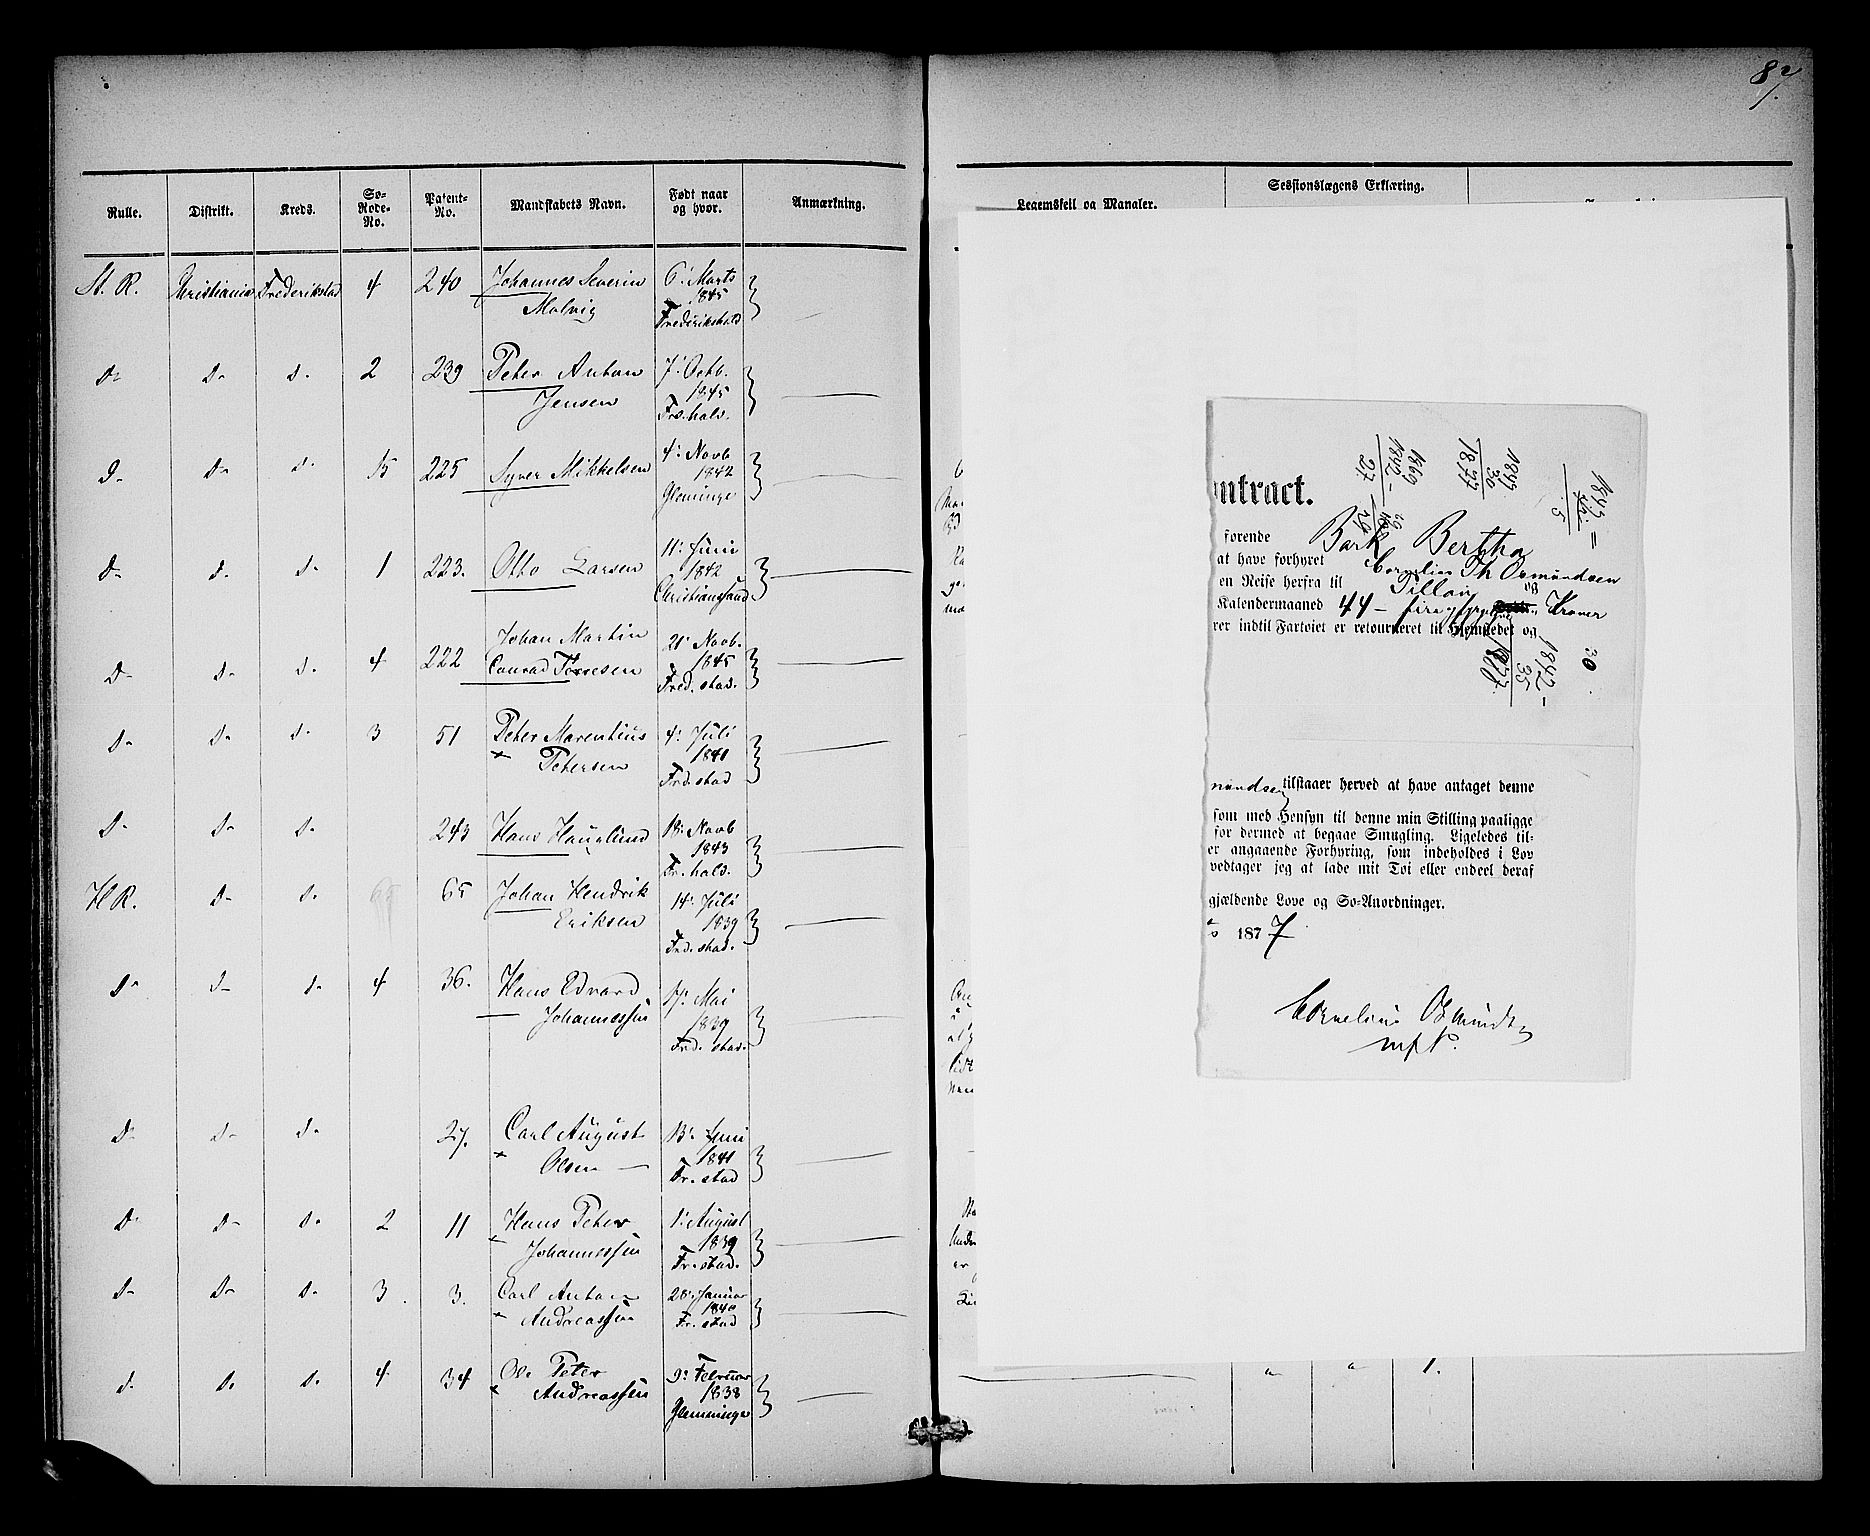 87.
Rulle. Distrikt. Kreds. Sø-Rode-No. Patent-No. Mandskabets Navn. Født naar og hvor. Anmærkning.
St. R. Christiania Frederikstad 4 240 Johannes Severin 6' Marts
Molvig 1845
Frederikshald
Do Do do 2 239 Peter Anton 7' Octb.
Jensen 1845
Frs. hald.
Do Do do 15 225 Syver Mikkelsen 4' Novb
1842
Glemminge
Do do do 1 223. Otto Larsen 11' Juni
1842
Christiansand
Do do do 4 222 Johan Martin 21' Novb.
Conrad Torresen 1845
Fred. stad.
Do Do do 3 51 Peter Marentius 4' Juli
Petersen 1841
Frd. stad
Do Do do 243 Hans Hauglund 18' Novb
1843
Fr. hald.
H R. Do do 65 65 Johan Hendrik 14' Juli
Eriksen 1839
Frd. stad.
Do Do do 4 36. Hans Edvard 17' Mai
Johannessen 1839
Frd. stad.
Do Do do 27. Carl August 13' Juni
Olsen 1841
Fr. stad
Do Do do 2 11 Hans Peter 1' August
Johannessen 1839
Fr. stad.
Do Do do 3. 3. Carl Anton 28' Januar
Andreassen 1840
Fr. stad
do do do 4 34 Ole Peter 9' Februar
Andreassen 1838
Glemminge
Sessionslægens Erklæring.
Legemsfeil og Mangler.
ontract.
førende Bark Bertha
at have forhyret Cornelius Th Osmundsen
en Reise herfra til Tillan og
Kalendermaaned 44 – firegfyrgetyve Kroner
rer indtil Fartøiet er retourneret til Hjemstedet og
1869
1842 –
27
1847
30
1877
1842 –
35
1877
30
mundsen tilstaaer herved at have antaget denne
som med Hensyn til denne min Stilling paaligge
for dermed at begaae Smugling. Ligeledes til-
er angaaende Forhyring, som indeholdes i Lov
vedtager jeg at lade mit Tøi eller endeel deraf
gjældende Love og Sø-Anordninger.
s 1877
Cornelius Osmundsen
mpP.